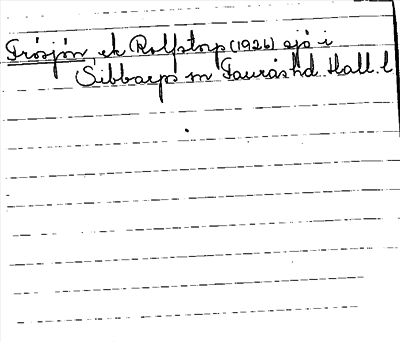 Frösjön, ek Rolfstorp (1926) sjö i
Sibbarps sn Fauråshd. Hall. l